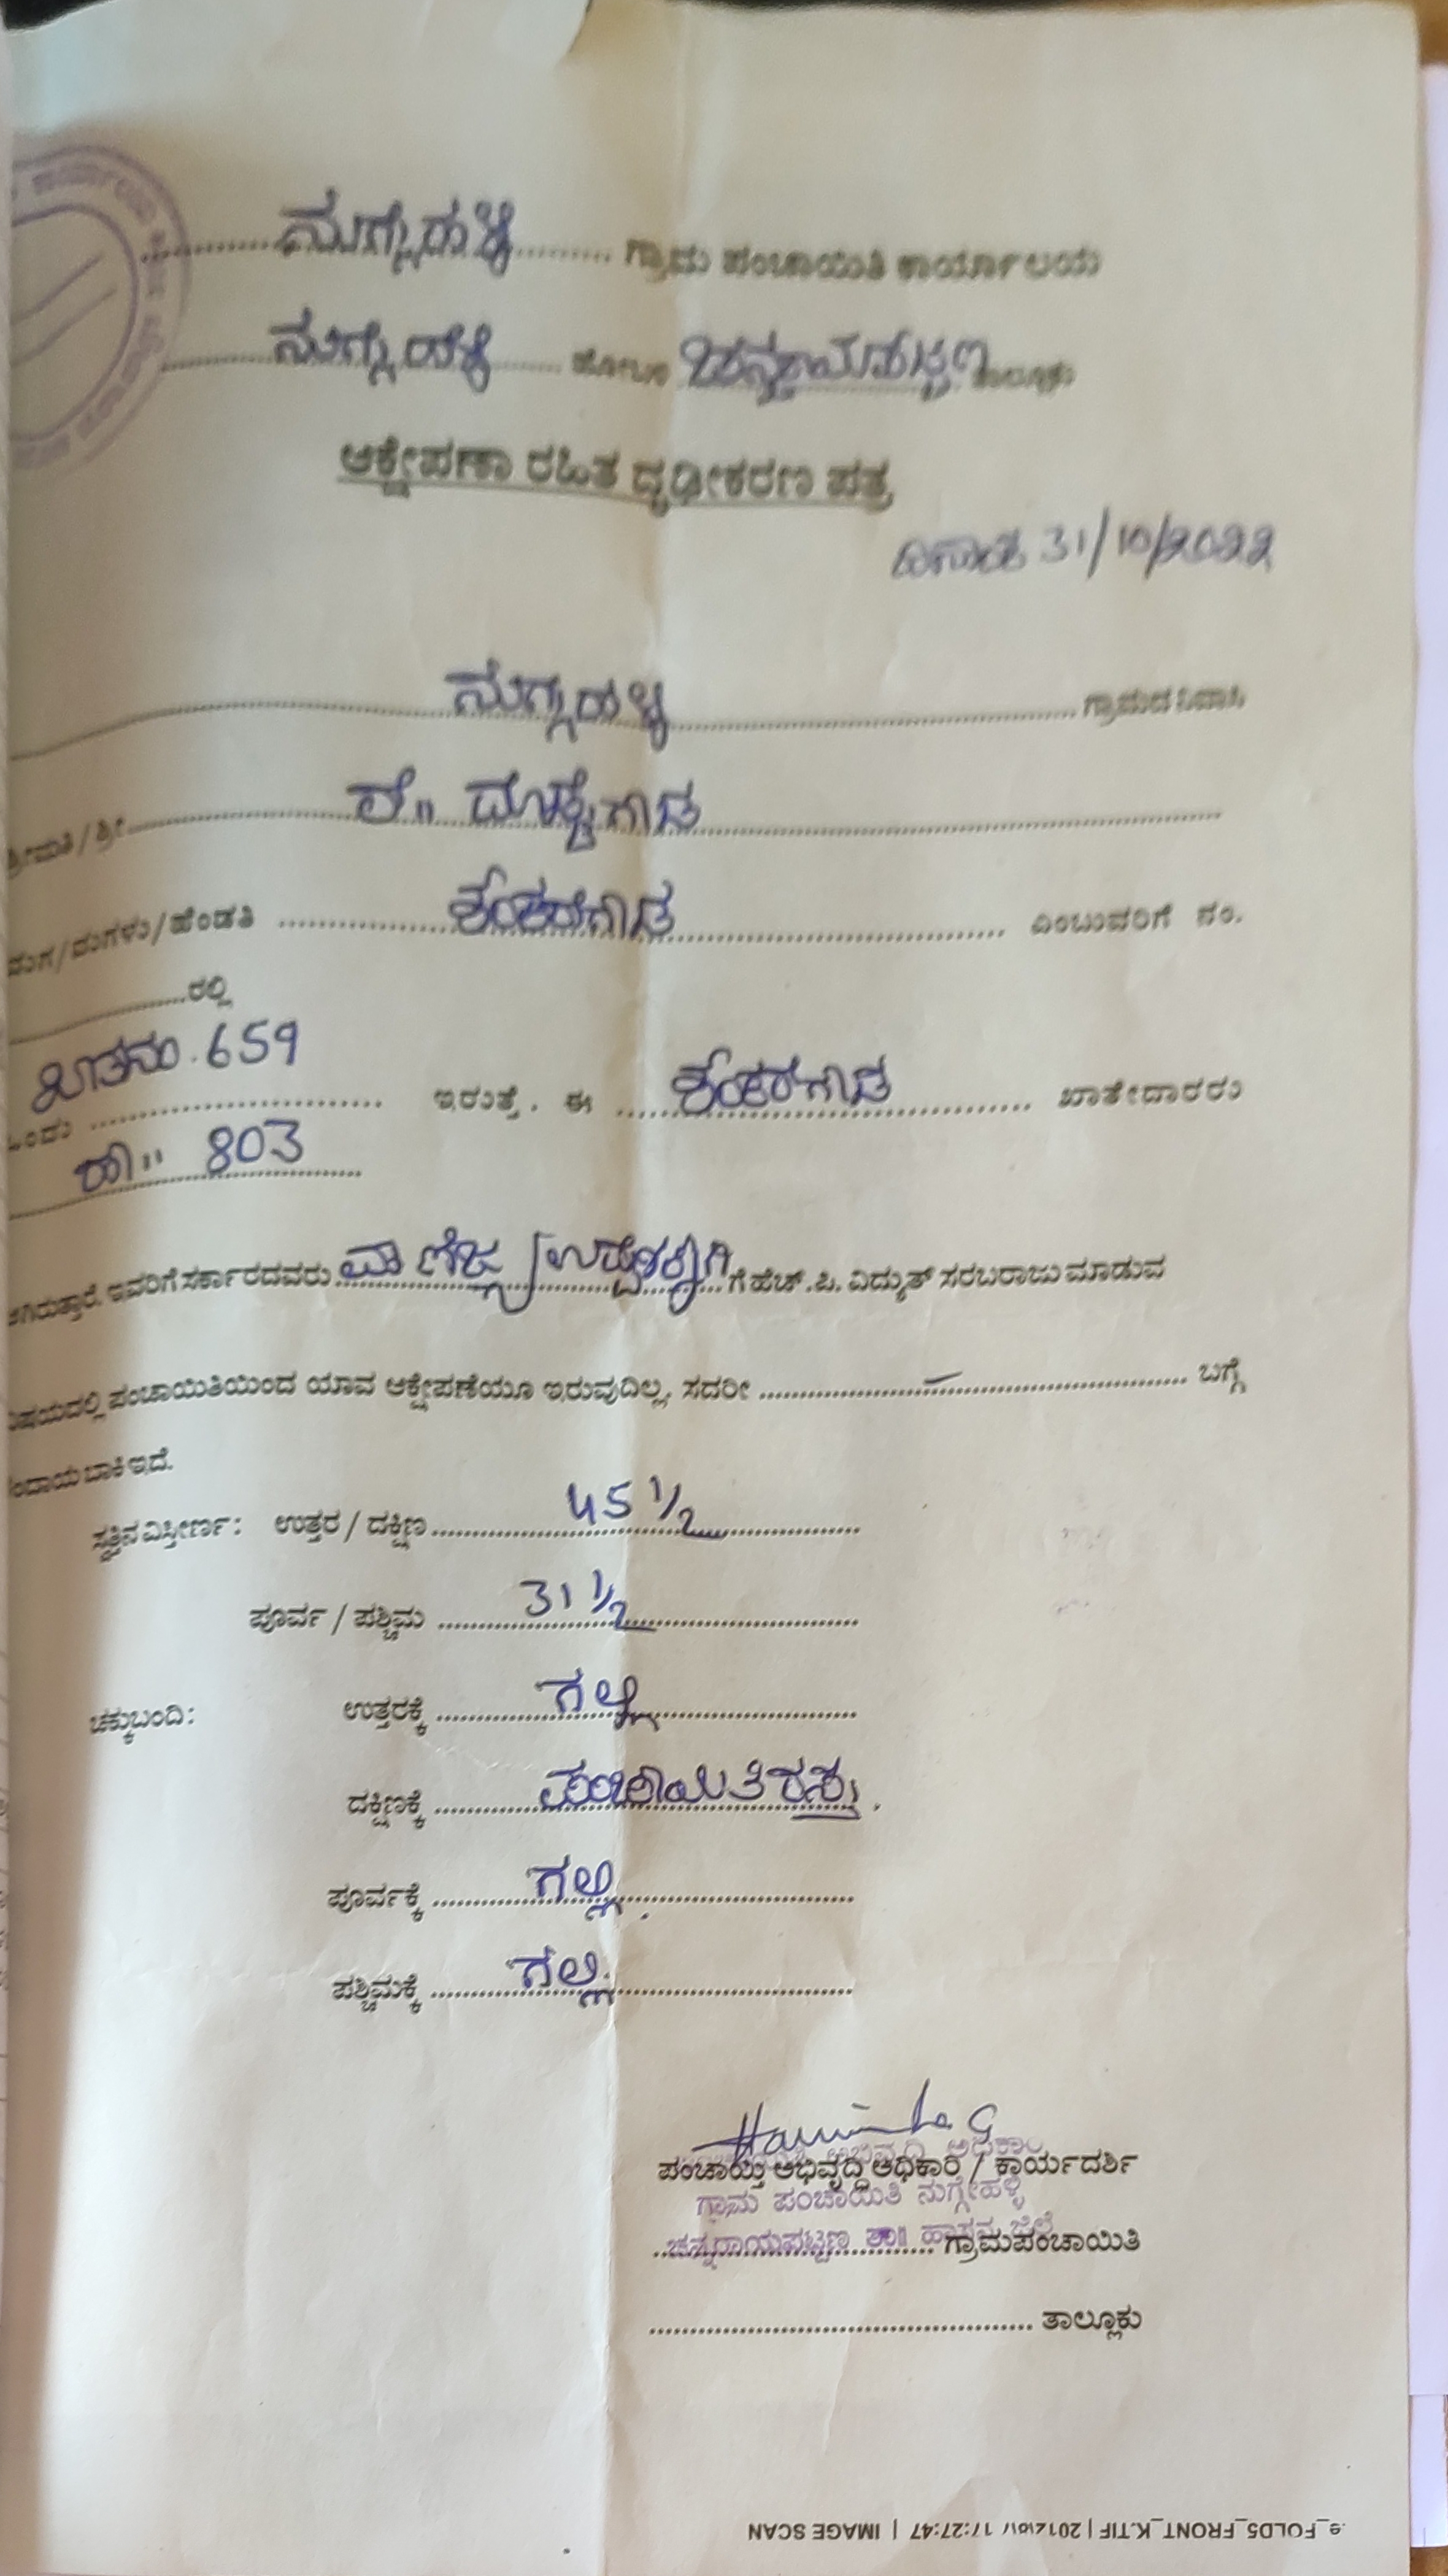 ನುಗ್ಗೇಹಳ್ಳಿ ಗ್ರಾಮ ಪಂಚಾಯಿತಿ ಕಾರ್ಯಾಲಯ
ನುಗ್ಗೇಹಳ್ಳಿ ಹೋಬಳಿ ಚನ್ನರಾಯಪಟ್ಟಣ ತಾಲ್ಲೂಕು
ಆಕ್ಷೇಪಣಾ ರಹಿತ ದೃಢೀಕರಣ ಪತ್ರ
ದಿನಾಂಕ 31/10/2022
ನುಗ್ಗೇಹಳ್ಳಿ ಗ್ರಾಮದ ನಿವಾಸಿ
ಶ್ರೀಮತಿ / ಶ್ರೀ ಲೇ॥ ದೊಡ್ಡೇಗೌಡ
ಮಗ/ಮಗಳು/ಹೆಂಡತಿ ಶಂಕರೇಗೌಡ ಎಂಬುವರಿಗೆ ನಂ.
ರಲ್ಲಿ
ಖಾತನಂ. 659
ಒಂದು ಇರುತ್ತೆ. ಈ ಶಂಕರೇಗೌಡ ಖಾತೇದಾರರು
803
ಆಗಿರುತ್ತಾರೆ. ಇವರಿಗೆ ಸರ್ಕಾರದವರು ಗೆ ಹೆಚ್.ಪಿ. ವಿದ್ಯುತ್ ಸರಬರಾಜು ಮಾಡುವ
ವಿಷಯದಲ್ಲಿ ಪಂಚಾಯಿತಿಯಿಂದ ಯಾವ ಆಕ್ಷೇಪಣೆಯೂ ಇರುವುದಿಲ್ಲ. ಸದರೀ – ಬಗ್ಗೆ
ಕಂದಾಯ ಬಾಕಿ ಇದೆ.
ಸ್ವತ್ತಿನ ವಿಸ್ತೀರ್ಣ : ಉತ್ತರ / ದಕ್ಷಿಣ 45 1/2
ಪೂರ್ವ / ಪಶ್ಚಿಮ 31 1/2
ಚಕ್ಕುಬಂದಿ : ಉತ್ತರಕ್ಕೆ ಗಲ್ಲಿ
ದಕ್ಷಿಣಕ್ಕೆ ಪಂಚಾಯಿತಿ ರಸ್ತೆ.
ಪೂರ್ವಕ್ಕೆ ಗಲ್ಲಿ.
ಪಶ್ಚಿಮಕ್ಕೆ ಗಲ್ಲಿ
ಪಂಚಾಯ್ತಿ ಅಭಿವೃದ್ಧಿ ಅಧಿಕಾರಿ / ಕಾರ್ಯದರ್ಶಿ
ಗ್ರಾಮ ಪಂಚಾಯಿತಿ ನುಗ್ಗೇಹಳ್ಳಿ
ಚನ್ನರಾಯಪಟ್ಟಣ ತಾ॥ ಹಾಸನ ಜಿಲ್ಲೆ
ಗ್ರಾಮಪಂಚಾಯಿತಿ
ತಾಲ್ಲೂಕು
FOLD5_FRONT_K.TIF | 17:27:47 | IMAGE SCAN